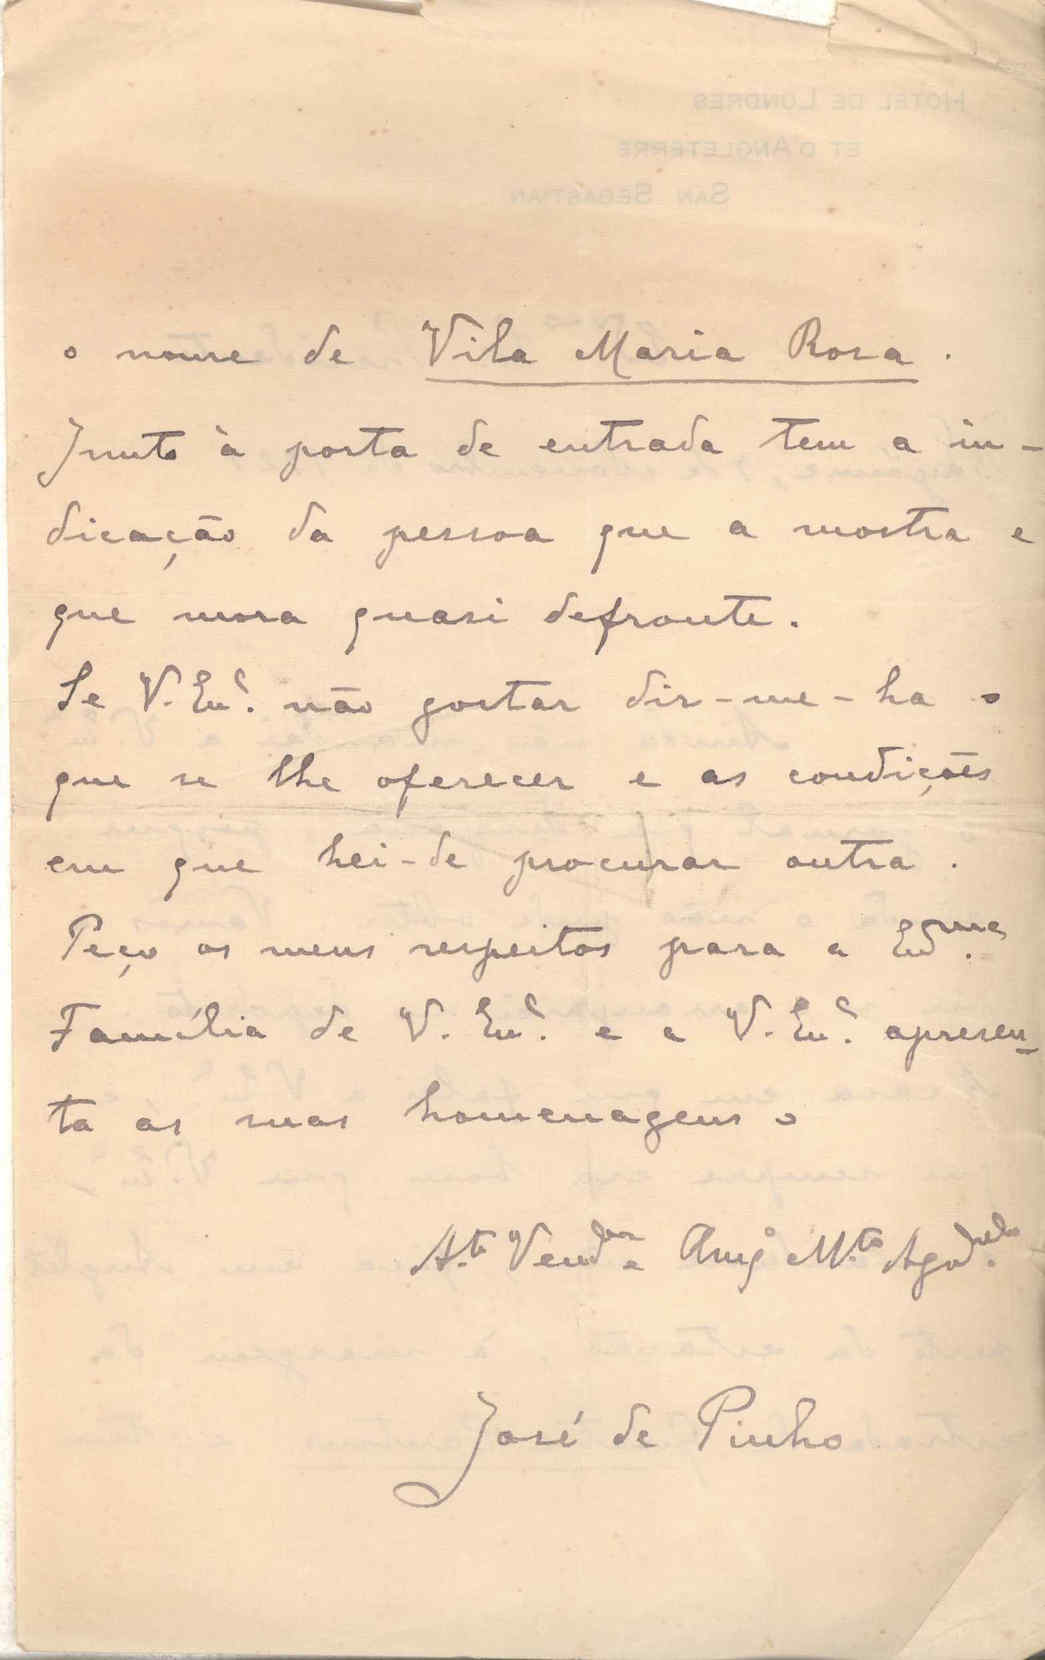 o nome de Vila Maria Rosa.
Junto à porta de entrada tem a in-
dicação da pessoa que a mostra e
que mora quasi defronte.
Se V. Exª. não gostar dir-me-ha o
que se lhe oferecer e as condições
em que hei-de procurar outra.
Peço os meus respeitos para a Exma.
Família de V. Exª. e a V. Exª. apresen-
ta as suas homenagens o
At.to Vend.or e Am.º M.to Agd.
José de Pinho
HOTEL DE LONDRES
ET D'ANGLETERRE
SAN SEBASTIAN